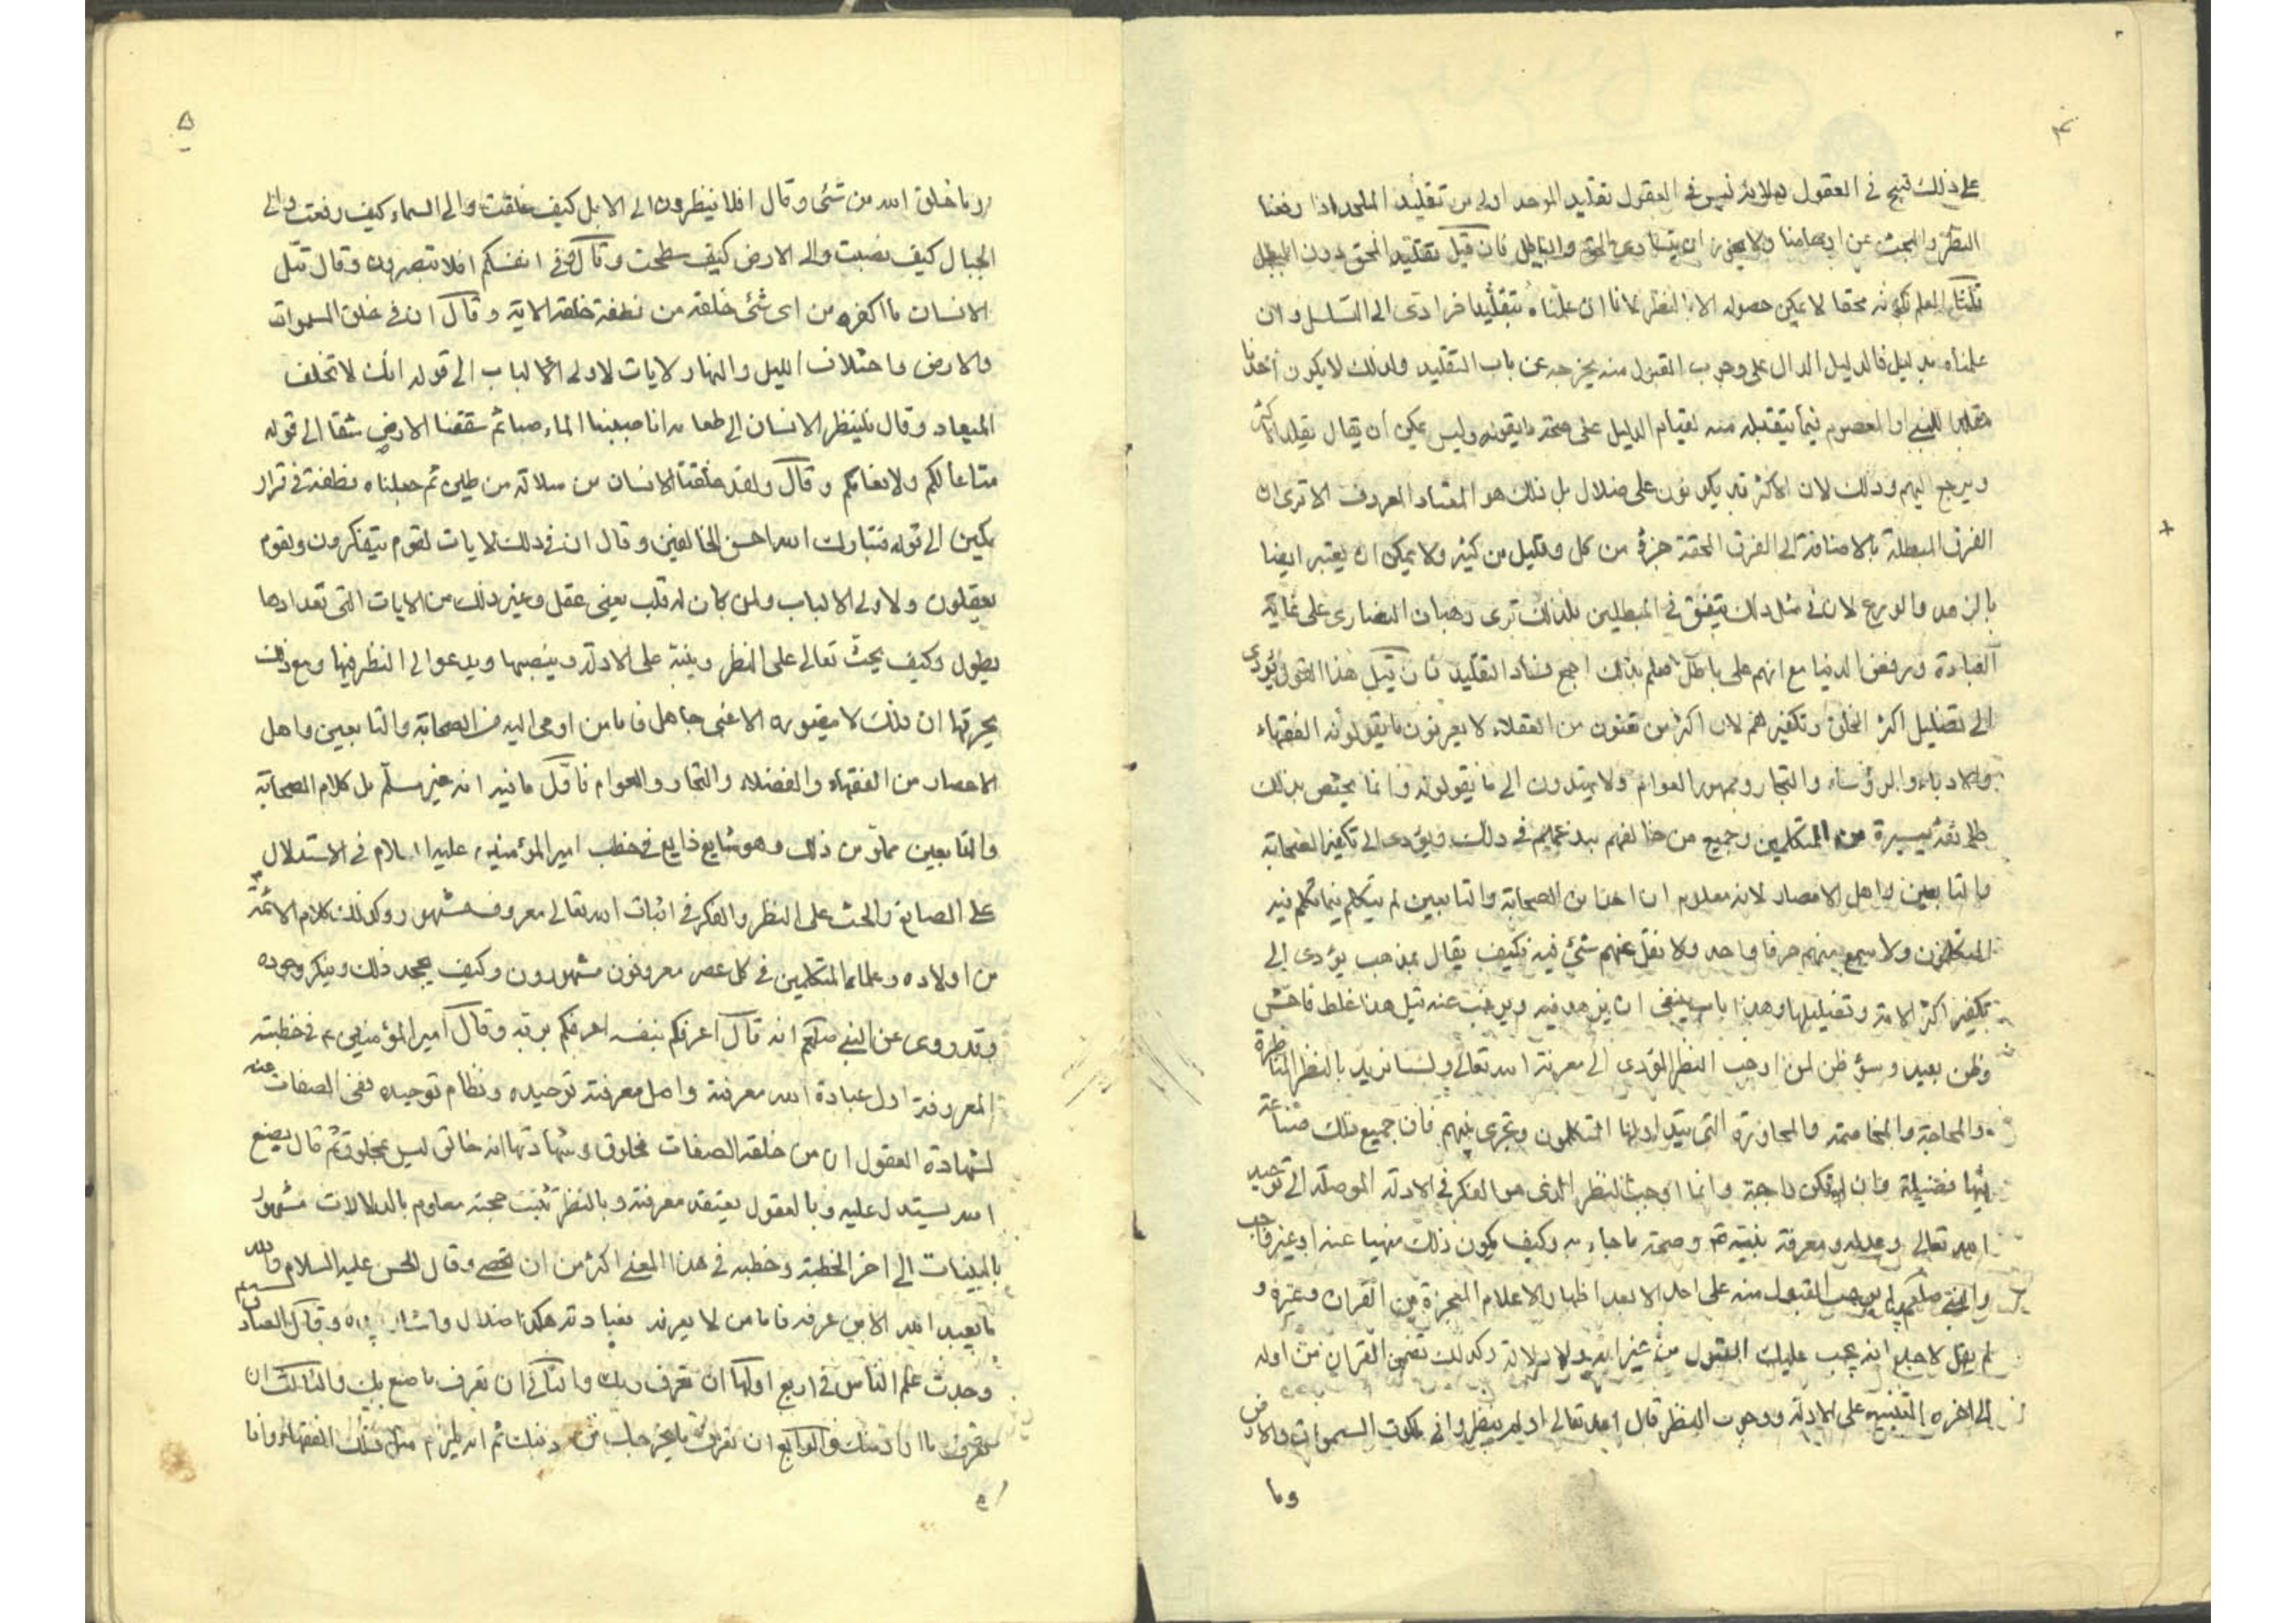 ٤
على ذلك قبيح في العقول ولانه ليس في العقول تقليد الموحد اولى من تقليد الملحد اذا رفعنا
النظر والبحث عن اوهامنا ولا يجوز ان يتساوى الحق والباطل فان قيل تقليد المحق دون المبطل
قلنا العلم بكونه محقا لا يمكن حصوله الا بالنظر لانا ان علمناه بتقليد اخر ادى الى التسلسل وان
علمناه بدليل فالدليل الدال على وجوب القبول منه يخرجه عن باب التقليد ولذلك لا يكون احدنا
مقلدا للنبي او المعصوم فيما يتقبله منه لقيام الدليل على صحة ما يقوله وليس يمكن ان يقال يقلد الاكثر
ويرجع اليهم وذلك لان الاكثر قد يكونون على ضلال بل ذلك هو المعتاد المعروف الا ترى ان
الفرق المبطلة بالاضافة الى الفرق المحقة جزء من كل وقليل من كثير ولا يمكن ان يعتبر ايضا
بالزهد والورع لان في مثل ذلك يتفق في المبطلين فلذلك ترى رهبان النصارى على غاية
العبادة ورفض الدنيا مع انهم على باطل فعلم بذلك اجمع فساد التقليد فان قيل هذا القول يؤدى
الى تضليل اكثر الخلق وتكفيرهم لان اكثر من تعنون من العقلاء لا يعرفون ما يقولونه الفقهاء
والادباء والرؤساء والتجار وجمهور العوام ولا يهتدون الى ما يقولونه وانما يختص بذلك
طائفة يسيرة من المتكلمين وجميع من خالفهم يبدعهم في ذلك ويؤدى الى تكفير الصحابة
والتابعين واهل الامصار لانه معلوم ان احدا من الصحابة والتابعين لم يتكلم فيما تكلم فيه
المتكلمون ولا سمع منهم حرفا واحد ولا نقل عنهم شئ فيه فكيف يقال بمذهب يؤدى الى
تكفير اكثر الامة وتضليلها وهذا باب ينبغى ان يزهد فيه ويرغب عنه قيل هذا غلط فاحش
وظن بعيد وسؤ ظن لمن اوجب النظر المؤدى الى معرفة الله تعالى ولسنا نريد بالنظر المناظرة
والمحاجة والمخاصمة والمحاورة التى يتداولها المتكلمون ويجرى بينهم فان جميع ذلك صناعة
فيها فضيلة وان لم تكن واجبة وانما اوجبنا النظر الذى هو الفكر في الادلة الموصلة الى توحيد
الله تعالى وعدله ومعرفة نبيه وصحة ما جاء به وكيف يكون ذلك منهيا عنه او غير واجب
والنبي صلعم لم يوجب القبول منه على احد الا بعد اظهار الاعلام المعجزة من القران وغيره و
لم يقل لاحد انه يجب عليك القبول من غير اية ولا دلالة وكذلك تضمن القران من اوله
الى اخره التنبيه على الادلة ووجوب النظر قال الله تعالى اولم ينظروا في ملكوت السموات والارض
وما
٥
وما خلق الله من شئ وقال افلا ينظرون الى الابل كيف خلقت والى السماء كيف رفعت والى
الجبال كيف نصبت والى الارض كيف سطحت وقال وفي انفسكم افلا تبصرون وقال قتل
الانسان ما اكفره من اى شئ خلقه من نطفة خلقه الاية وقال ان في خلق السموات
والارض واختلاف الليل والنهار لايات لاولى الالباب الى قوله انك لا تخلف
الميعاد وقال فلينظر الانسان الى طعامه انا صببنا الماء صبا ثم شققنا الارض شقا الى قوله
متاعا لكم ولانعامكم وقال ولقد خلقنا الانسان من سلالة من طين ثم جعلناه نطفة في قرار
مكين الى قوله فتبارك الله احسن الخالقين وقال ان في ذلك لايات لقوم يتفكرون ولقوم
يعقلون ولاولى الالباب ولمن كان له قلب يعنى عقل وغير ذلك من الايات التى تعدادها
يطول وكيف يحث تعالى على النظر وينبه على الادلة وينصبها ويدعو الى النظر فيها ومع ذلك
يحرمها ان ذلك لا يتصوره الا غبى جاهل فاما من اومى اليه من الصحابة والتابعين واهل
الاعصار من الفقهاء والفضلاء والتجار والعوام فاول ما فيه انه غير مسلم بل كلام الصحابة
والتابعين مملو من ذلك وهو شايع ذايع في خطب امير المؤمنين عليه السلام في الاستدلال
على الصانع والحث على النظر والفكر في اثبات الله تعالى معروف مشهور وكذلك كلام الائمة
من اولاده وعلماء المتكلمين في كل عصر معروفون مشهورون وكيف يجحد ذلك وينكر وجوده
وقد روى عن النبي صلعم انه قال اعرفكم بنفسه اعرفكم بربه وقال امير المؤمنين ع في خطبته
المعروفة اول عبادة الله معرفته واصل معرفته توحيده ونظام توحيده نفى الصفات عنه
لشهادة العقول ان من حلته الصفات مخلوق وشهادتها انه خالق ليس بمخلوق ثم قال بصنع
الله يستدل عليه وبالعقول يعتقد معرفته وبالنظر تثبت حجته معلوم بالدلالات مشهور
بالبينات الى اخر الخطبة وخطبه في هذا المعنى اكثر من ان تحصى وقال الحسن عليه السلام والله
ما يعبد الله الا من عرفه فاما من لا يعرفه فعبادته هكذا ضلال واشار بيده وقال الصادق
وجدت علم الناس في اربع اولها ان تعرف ربك والثانى ان تعرف ما صنع بك والثالث ان
تعرف ما اراد منك والرابع ان تعرف ما يخرجك من دينك ثم انه لم يلزم مثل ذلك الفقهاء وانما